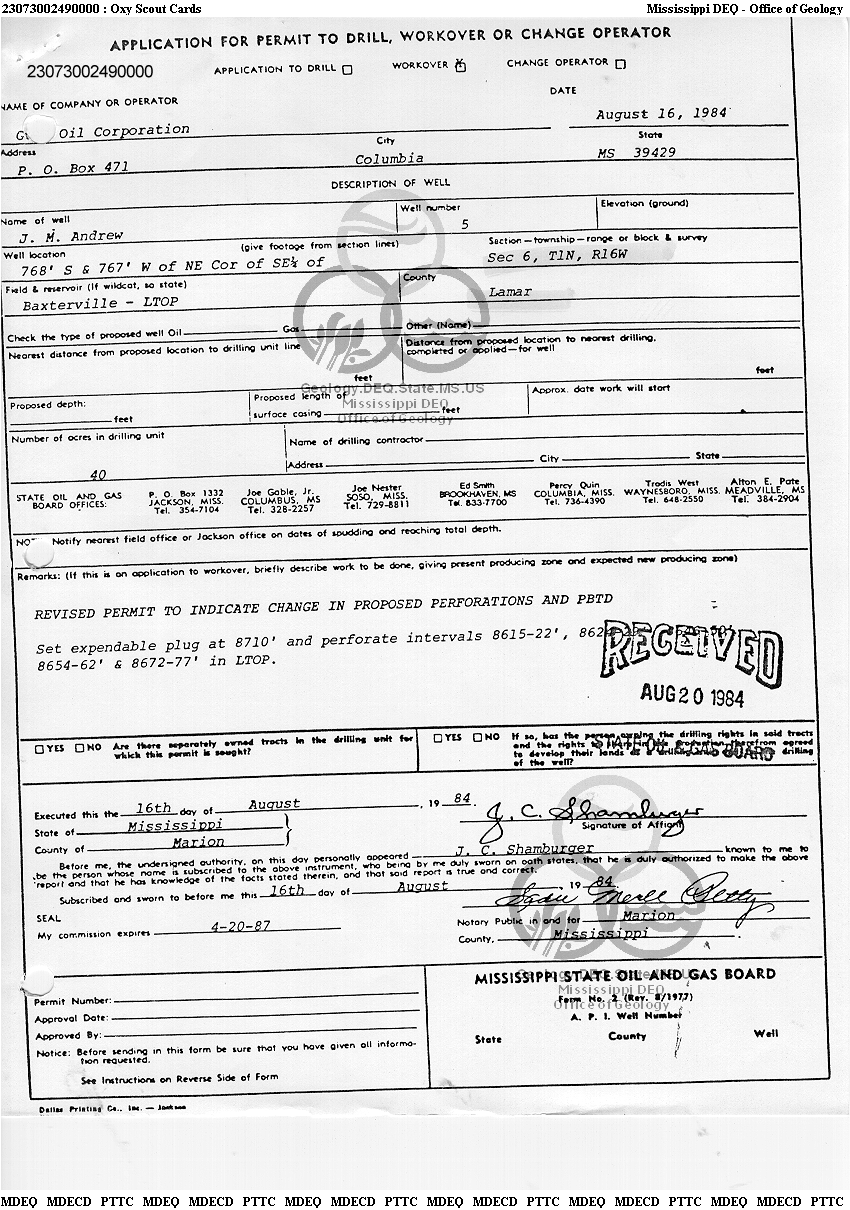 23073002490000 : Oxy Scout Cards Mississippi DEQ - Office of Geology
APPLICATION FOR PERMIT TO DRILL, WORKOVER OR CHANGE OPERATOR
23073002490000 APPLICATION TO DRILL WORKOVER X CHANGE OPERATOR
NAME OF COMPANY OR OPERATOR DATE
Oil Corporation August 16, 1984
Address City State
P. O. Box 471 Columbia MS 39429
DESCRIPTION OF WELL
Name of well Well number Elevation (ground)
J. M. Andrew 5
Well location (give footage from section lines) Section—township—range or block & survey
768' S & 767' W of NE Cor of SE¼ of Sec 6, T1N, R16W
Field & reservoir (If wildcat, so state) County
Baxterville - LTOP Lamar
Check the type of proposed well Oil Gas Other (Name)
Nearest distance from proposed location to drilling unit line Distance from proposed location to nearest drilling,
completed or applied—for well
feet feet
Geology.DEQ.State.MS.US
Mississippi DEQ
Office of Geology
Proposed depth: Proposed length of Approx. date work will start
feet surface casing feet
Number of acres in drilling unit Name of drilling contractor
40 Address City State
STATE OIL AND GAS BOARD OFFICES:
P. O. Box 1332 JACKSON, MISS. Tel. 354-7104
Joe Gable, Jr. COLUMBUS, MS Tel. 328-2257
Joe Nester SOSO, MISS. Tel. 729-8811
Ed Smith BROOKHAVEN, MS Tel. 833-7700
Percy Quin COLUMBIA, MISS. Tel. 736-4390
Tradis West WAYNESBORO, MISS. Tel. 648-2550
Alton E. Pate MEADVILLE, MS Tel. 384-2904
Notify nearest field office or Jackson office on dates of spudding and reaching total depth.
Remarks: (If this is an application to workover, briefly describe work to be done, giving present producing zone and expected new producing zone)
REVISED PERMIT TO INDICATE CHANGE IN PROPOSED PERFORATIONS AND PBTD
Set expendable plug at 8710' and perforate intervals 8615-22',
8654-62' & 8672-77' in LTOP.
RECEIVED
AUG 20 1984
STATE OIL & GAS BOARD
YES NO Are there separately owned tracts in the drilling unit for
which this permit is sought?
YES NO If so, has the person owning the drilling rights in said tracts
and the rights
to develop their lands
of the well?
Executed this the 16th day of August , 19 84 J. C. Shamburger
State of Mississippi Signature of Affiant
County of Marion
Before me, the undersigned authority, on this day personally appeared J. C. Shamburger known to me to
be the person whose name is subscribed to the above instrument, who being by me duly sworn on oath states, that he is duly authorized to make the above
report and that he has knowledge of the facts stated therein, and that said report is true and correct.
Subscribed and sworn to before me this 16th day of August 19 84
SEAL Notary Public in and for Marion
My commission expires 4-20-87 County, Mississippi
MISSISSIPPI STATE OIL AND GAS BOARD
Mississippi DEQ
Form No. 2 (Rev. 8/1977)
Office of Geology
A. P. I. Well Number
State County Well
Permit Number:
Approval Date:
Approved By:
Notice: Before sending in this form be sure that you have given all informa-
tion requested.
See Instructions on Reverse Side of Form
Dallas Printing Co., Inc. — Jackson
MDEQ MDECD PTTC MDEQ MDECD PTTC MDEQ MDECD PTTC MDEQ MDECD PTTC MDEQ MDECD PTTC MDEQ MDECD PTTC